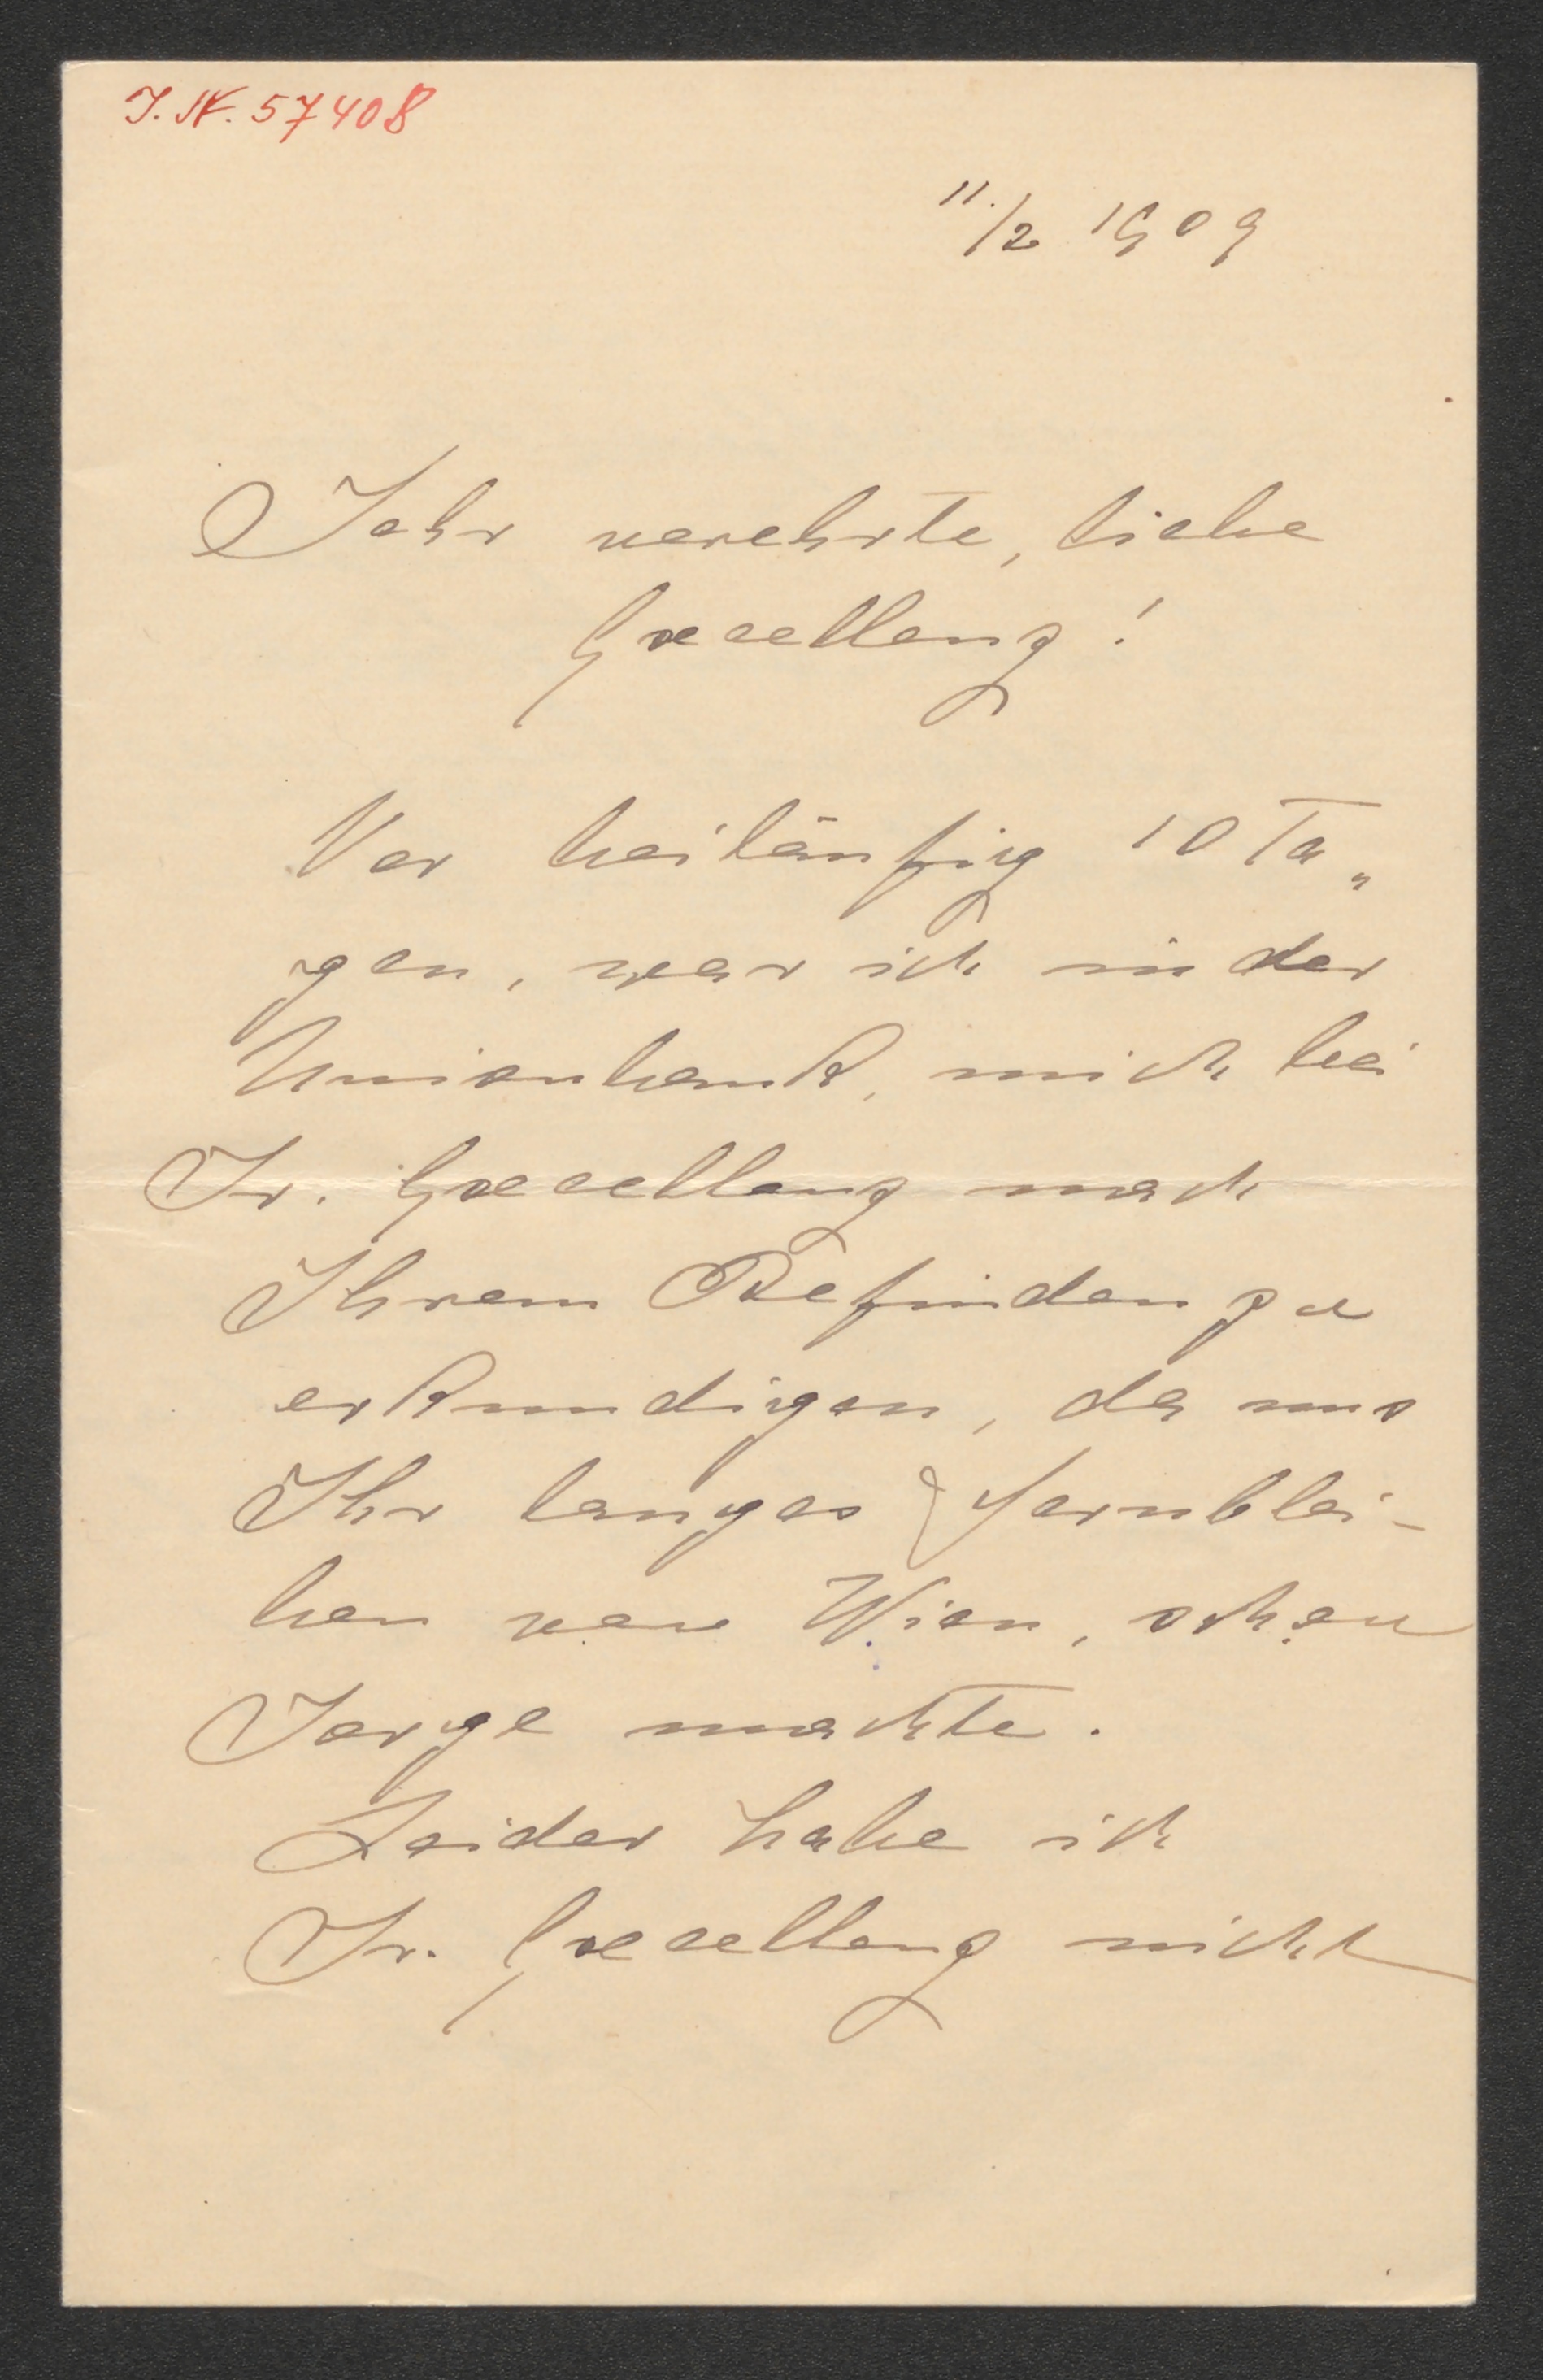 J. N. 57408
11./2 1909
Sehr verehrte, liebe
Excellenz!
Vor beiläufig 10 Ta„
gen, war ich in der
Unionbank, mich bei
Sr. Excellenz nach
Ihrem Befinden zu
erkundigen, da uns
Ihr langes Fernblei-
ben von Wien, schon
Sorge machte.
Leider habe ich
Sr. Excellenz nicht